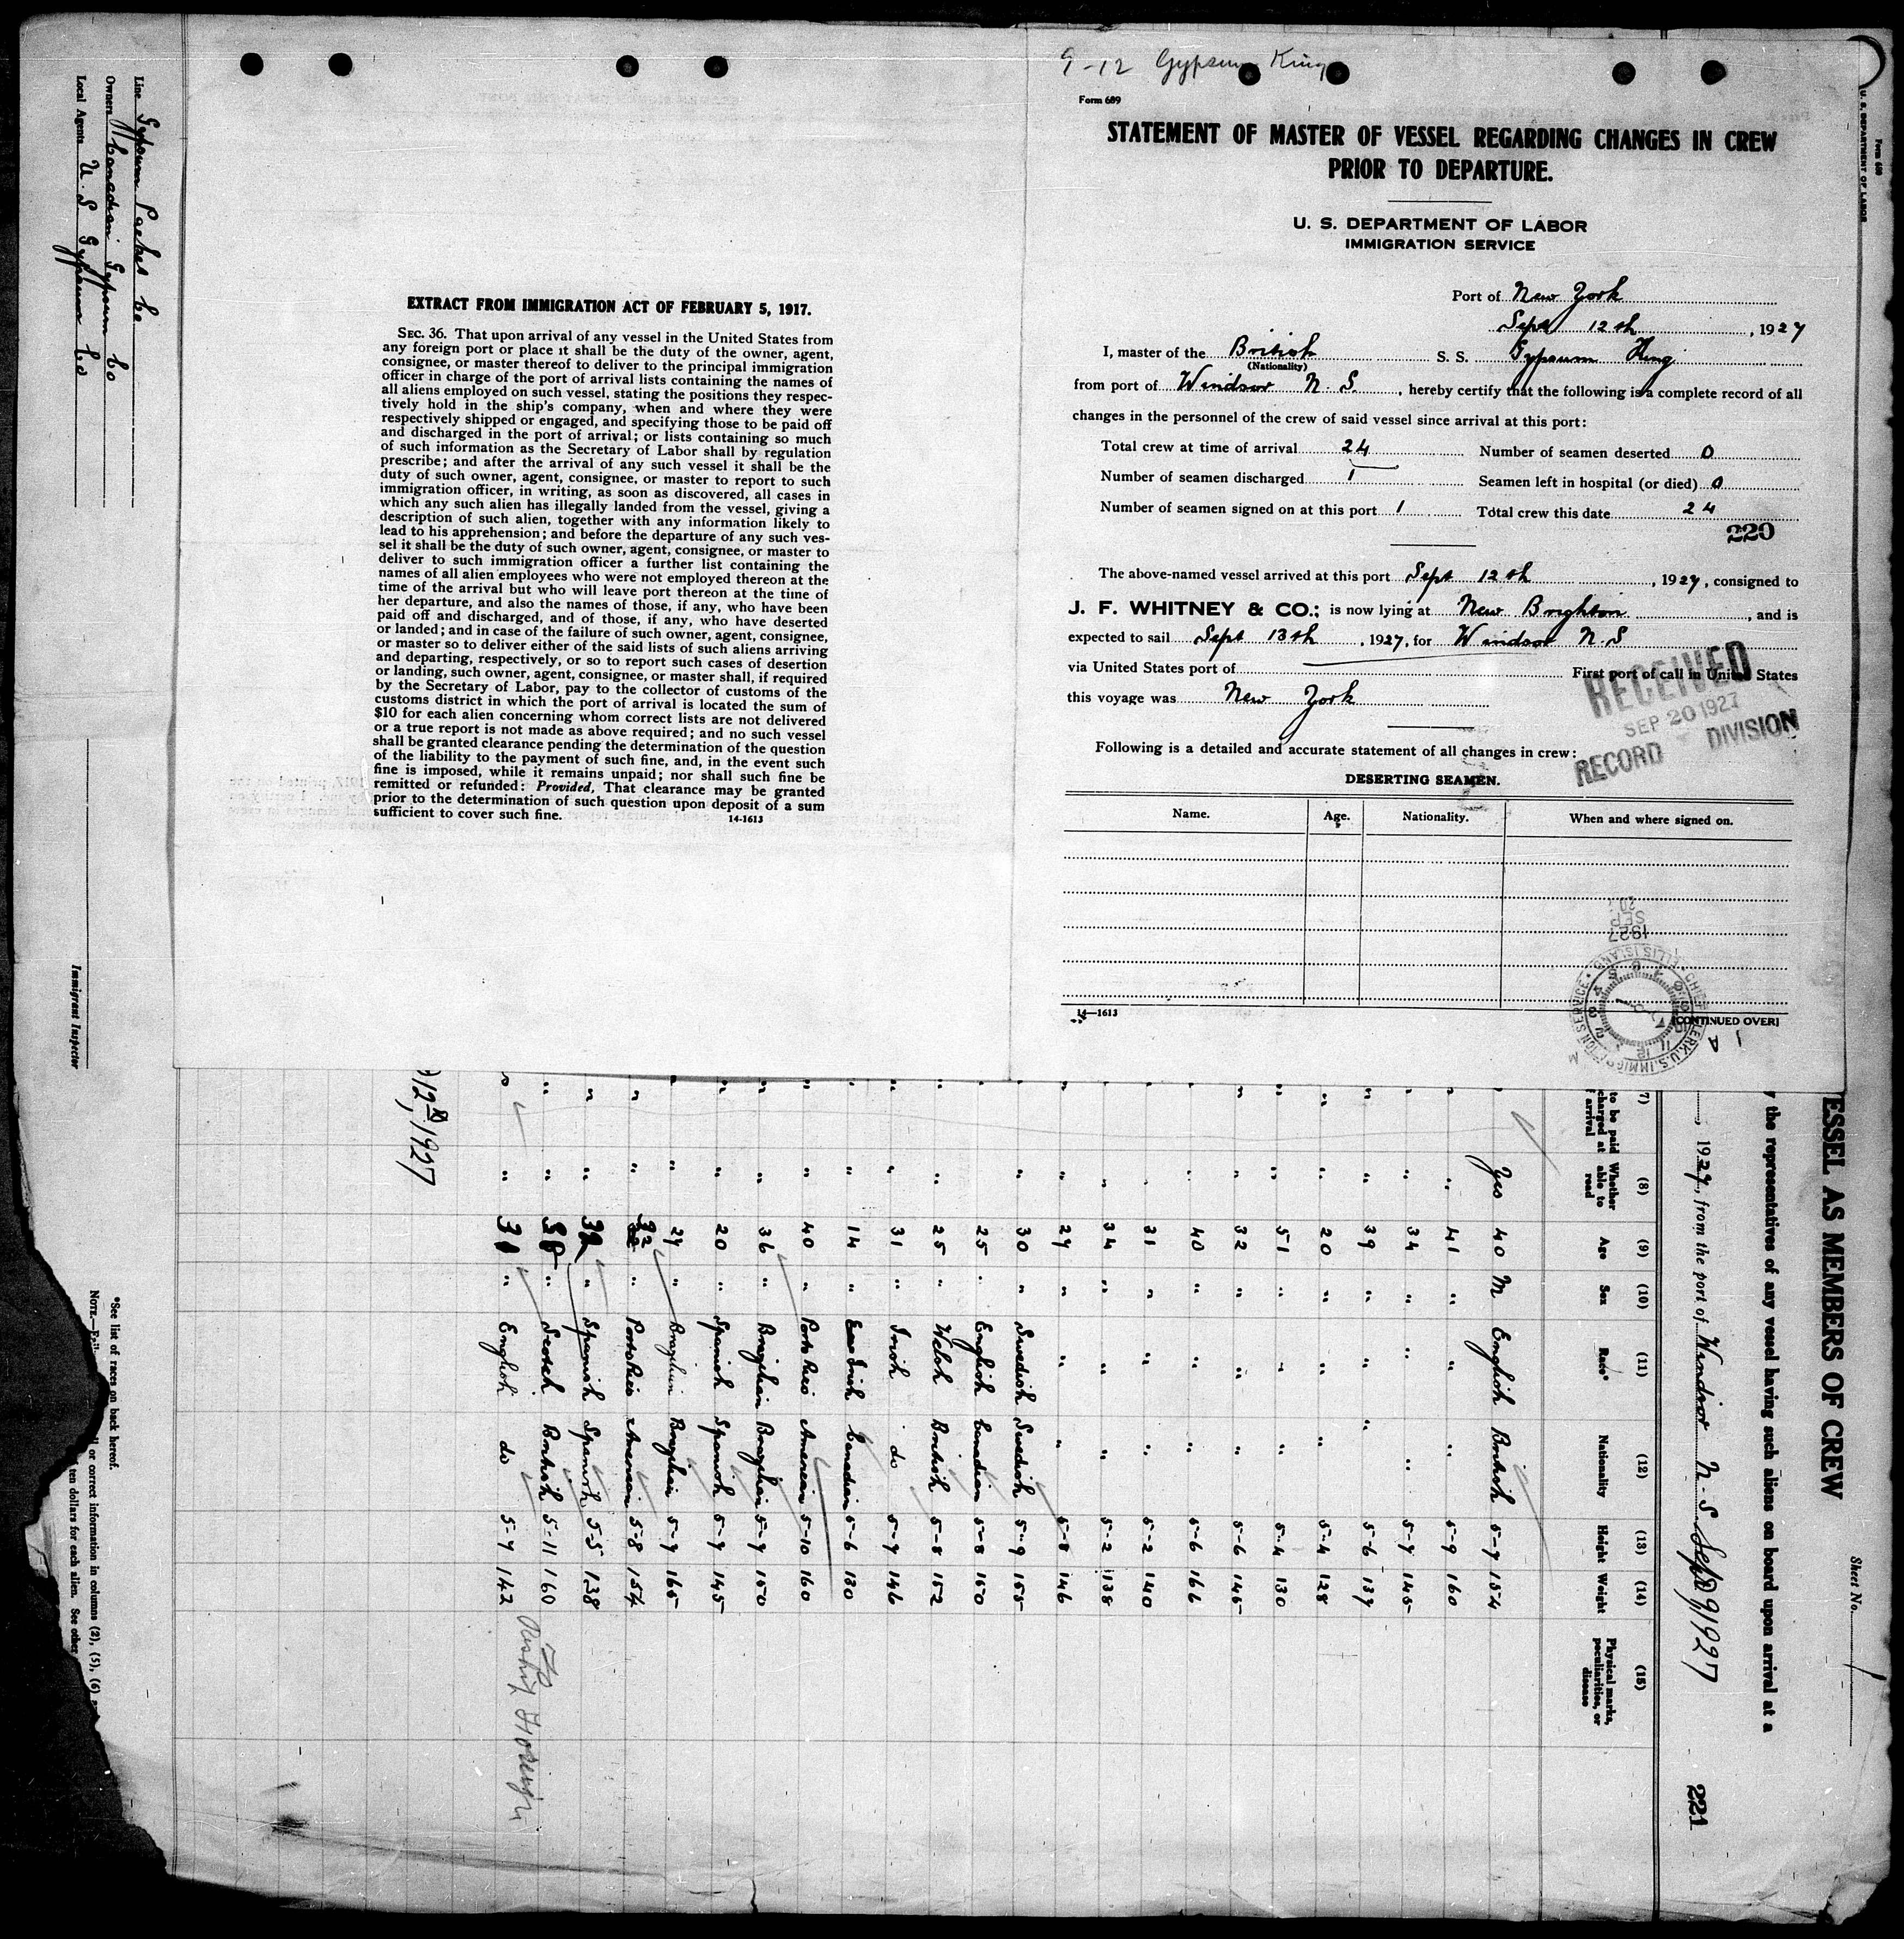 9-12 Gypsum King
Form 689
STATEMENT OF MASTER OF VESSEL REGARDING CHANGES IN CREW
PRIOR TO DEPARTURE.
U. S. DEPARTMENT OF LABOR
IMMIGRATION SERVICE
Port of New York
Sept 12th, 1927
I, master of the British S. S. Gypsum King
(Nationality)
from port of Windsor N. S., hereby certify that the following is a complete record of all
changes in the personnel of the crew of said vessel since arrival at this port:
Total crew at time of arrival 24 Number of seamen deserted 0
Number of seamen discharged 1 Seamen left in hospital (or died) 0
Number of seamen signed on at this port 1 Total crew this date 24
220
The above-named vessel arrived at this port Sept 12th, 1927, consigned to
J. F. WHITNEY & CO.; is now lying at New Brighton, and is
expected to sail Sept 13th, 1927, for Windsor N. S
via United States port of First port of call in United States
this voyage was New York
RECEIVED
SEP 20 1927
RECORD DIVISION
Following is a detailed and accurate statement of all changes in crew:
DESERTING SEAMEN.
Name. Age. Nationality. When and where signed on.
14—1613
(CONTINUED OVER)
EXTRACT FROM IMMIGRATION ACT OF FEBRUARY 5, 1917.
SEC. 36. That upon arrival of any vessel in the United States from
any foreign port or place it shall be the duty of the owner, agent,
consignee, or master thereof to deliver to the principal immigration
officer in charge of the port of arrival lists containing the names of
all aliens employed on such vessel, stating the positions they respec-
tively hold in the ship's company, when and where they were
respectively shipped or engaged, and specifying those to be paid off
and discharged in the port of arrival; or lists containing so much
of such information as the Secretary of Labor shall by regulation
prescribe; and after the arrival of any such vessel it shall be the
duty of such owner, agent, consignee, or master to report to such
immigration officer, in writing, as soon as discovered, all cases in
which any such alien has illegally landed from the vessel, giving a
description of such alien, together with any information likely to
lead to his apprehension; and before the departure of any such ves-
sel it shall be the duty of such owner, agent, consignee, or master to
deliver to such immigration officer a further list containing the
names of all alien employees who were not employed thereon at the
time of the arrival but who will leave port thereon at the time of
her departure, and also the names of those, if any, who have been
paid off and discharged, and of those, if any, who have deserted
or landed; and in case of the failure of such owner, agent, consignee,
or master so to deliver either of the said lists of such aliens arriving
and departing, respectively, or so to report such cases of desertion
or landing, such owner, agent, consignee, or master shall, if required
by the Secretary of Labor, pay to the collector of customs of the
customs district in which the port of arrival is located the sum of
$10 for each alien concerning whom correct lists are not delivered
or a true report is not made as above required; and no such vessel
shall be granted clearance pending the determination of the question
of the liability to the payment of such fine, and, in the event such
fine is imposed, while it remains unpaid; nor shall such fine be
remitted or refunded: Provided, That clearance may be granted
prior to the determination of such question upon deposit of a sum
sufficient to cover such fine.
14-1613
Form 689
U. S. DEPARTMENT OF LABOR
Sheet No. 1
ESSEL AS MEMBERS OF CREW
the representatives of any vessel having such aliens on board upon arrival at a
, 1927, from the port of Windsor N. S Sept 9/1927
221
(7) (8) (9) (10) (11) (12) (13) (14) (15)
to be paid charged at arrival Whether able to read Age Sex Race* Nationality Height Weight Physical marks, peculiarities, or disease
Yes 40 M English British 5-7 154
" 41 " " " 5-9 160
" 34 " " " 5-7 145
" 39 " " " 5-6 137
" 20 " " " 5-4 128
" 51 " " " 5-4 130
" 32 " " " 5-6 145
" 40 " " " 5-6 166
" 31 " " " 5-2 140
" 34 " " " 5-2 138
" 27 " " " 5-8 146
" 30 " Swedish Swedish 5-9 155
" 25 " English Canadian 5-8 150
" 25 " Welsh British 5-8 152
" 31 " Irish do 5-7 146
" 14 " Irish Canadian 5-6 130
" 40 " Porto Rico American 5-10 160
" 36 " Brazilian Brazilian 5-7 150
" 20 " Spanish Spanish 5-7 145
" 27 " Brazilian Brazilian 5-7 165
" 32 " Porto Rico American 5-8 154
" 39 " Spanish Spanish 5-5 138
" 38 " Scotch British 5-11 160
" 31 " English do 5-7 142
12th/1927
Line Gypsum Packet Co
Owners Canadian Gypsum Co
Local Agents U. S Gypsum Co
Immigrant Inspector
*See list of races on back hereof.
NOTE.— or correct information in columns (2), (5), (6)
ten dollars for each alien. See other